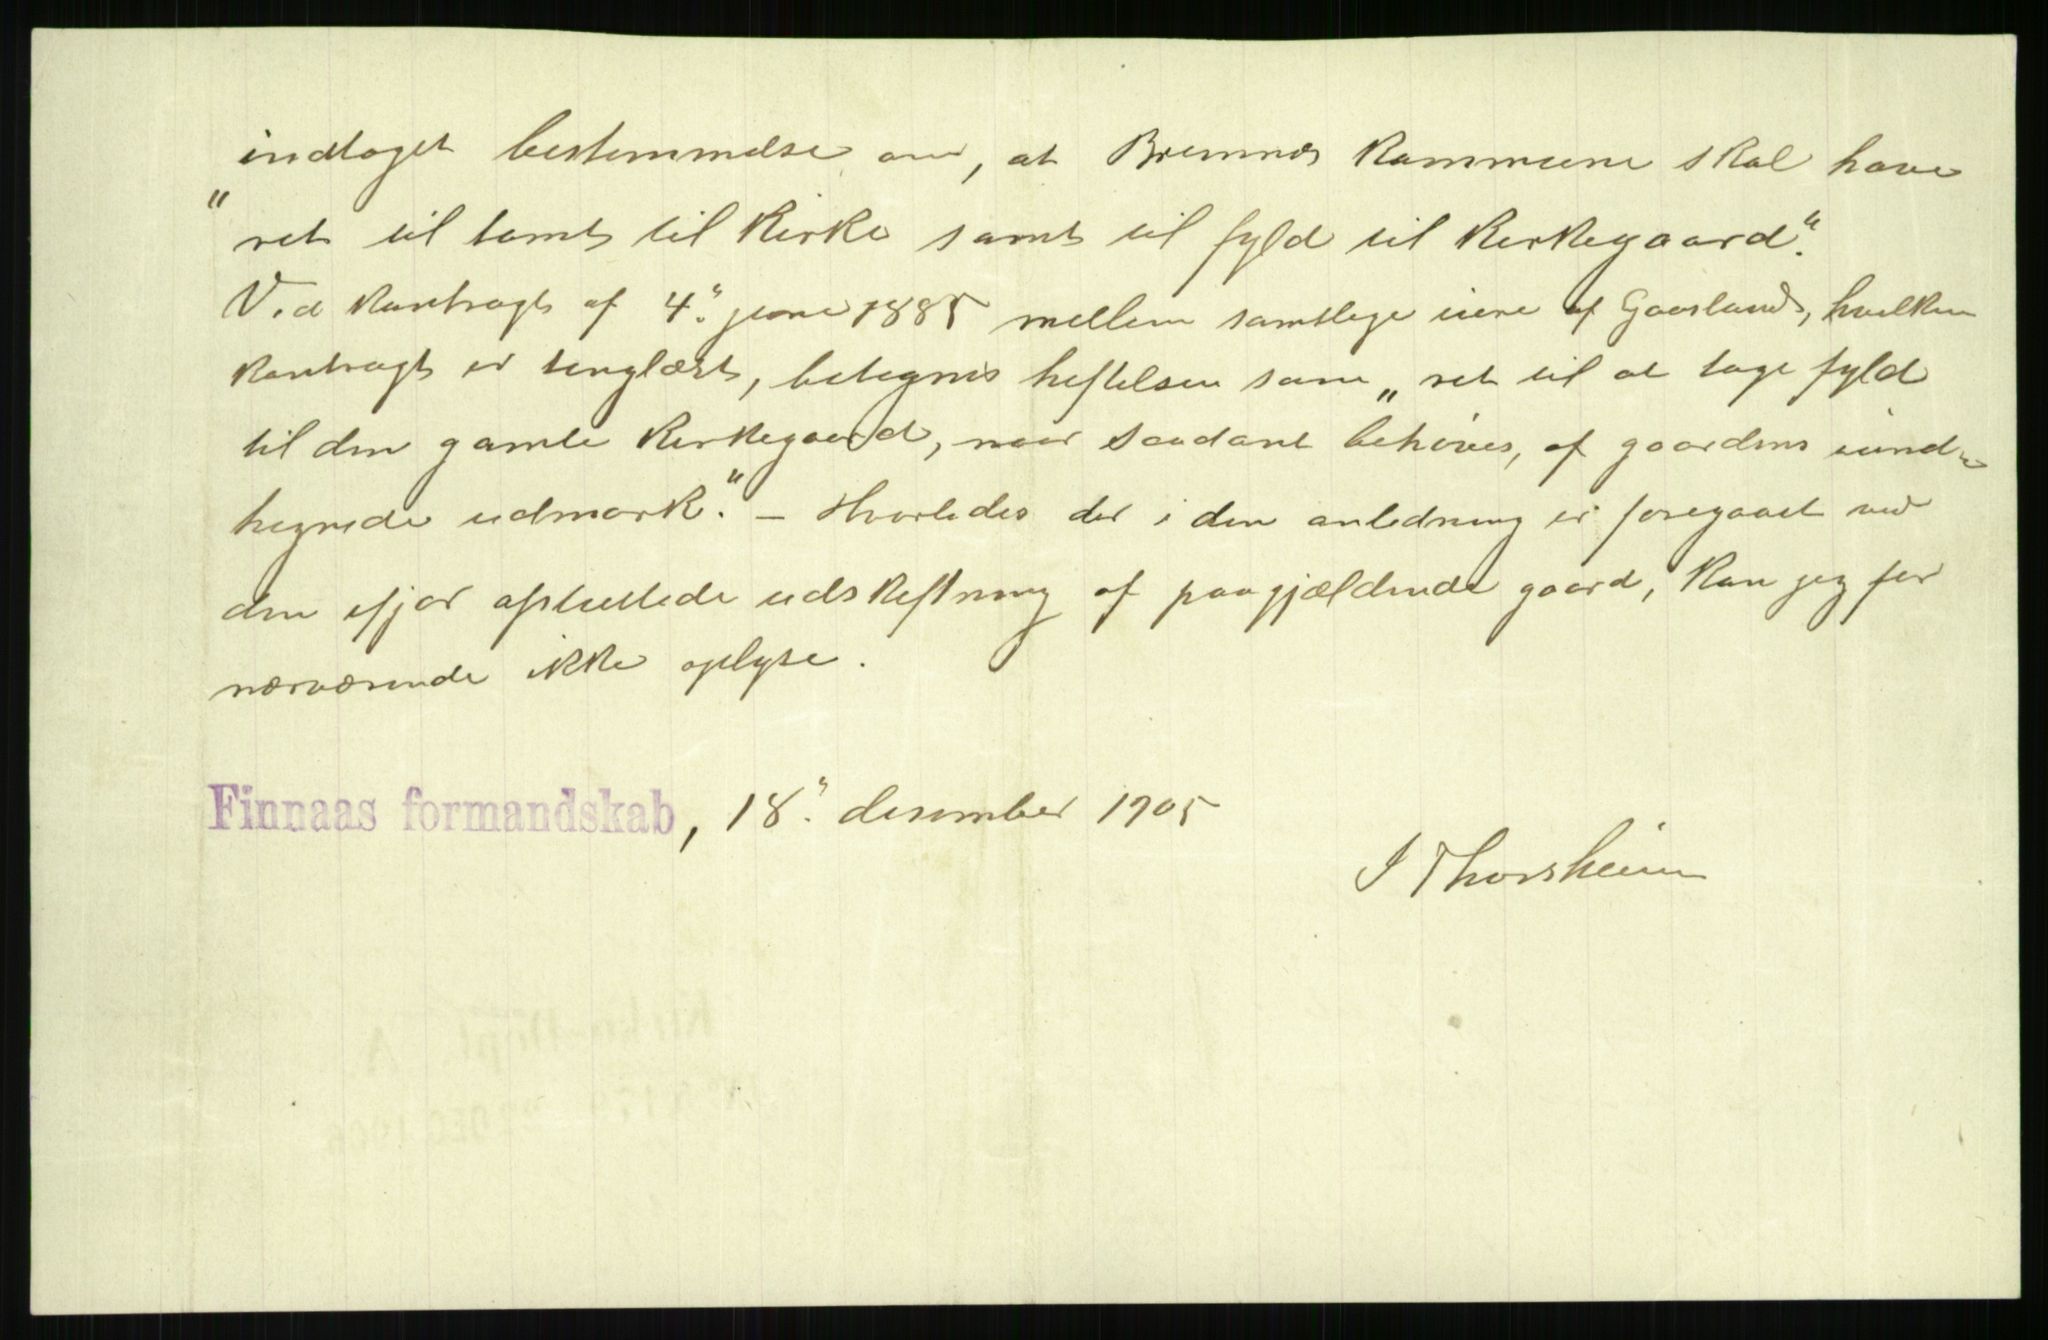 indtaget bestemmelse om, at Bremnes kommune skal have
"ret til tomt til kirke samt til fyld til kirkegaard."
Ved kontragt af 4.' june 1885 mellem samtlige eiere af Gaasland, hvilken
kontragt er tinglæst, betegnes heftelsen som „ret til at tage fyld
til den gamle kirkegaard, naar saadant behøves, af gaardens uind-
hegnede udmark." - Hvorledes der i den anledning er foregaaet ved
den ifjor afsluttede udskiftning af paagjældende gaard, kan jeg for
nærværende ikke oplyse.
Finnaas formandskab, 18.' desember 1905
J Thorsheim